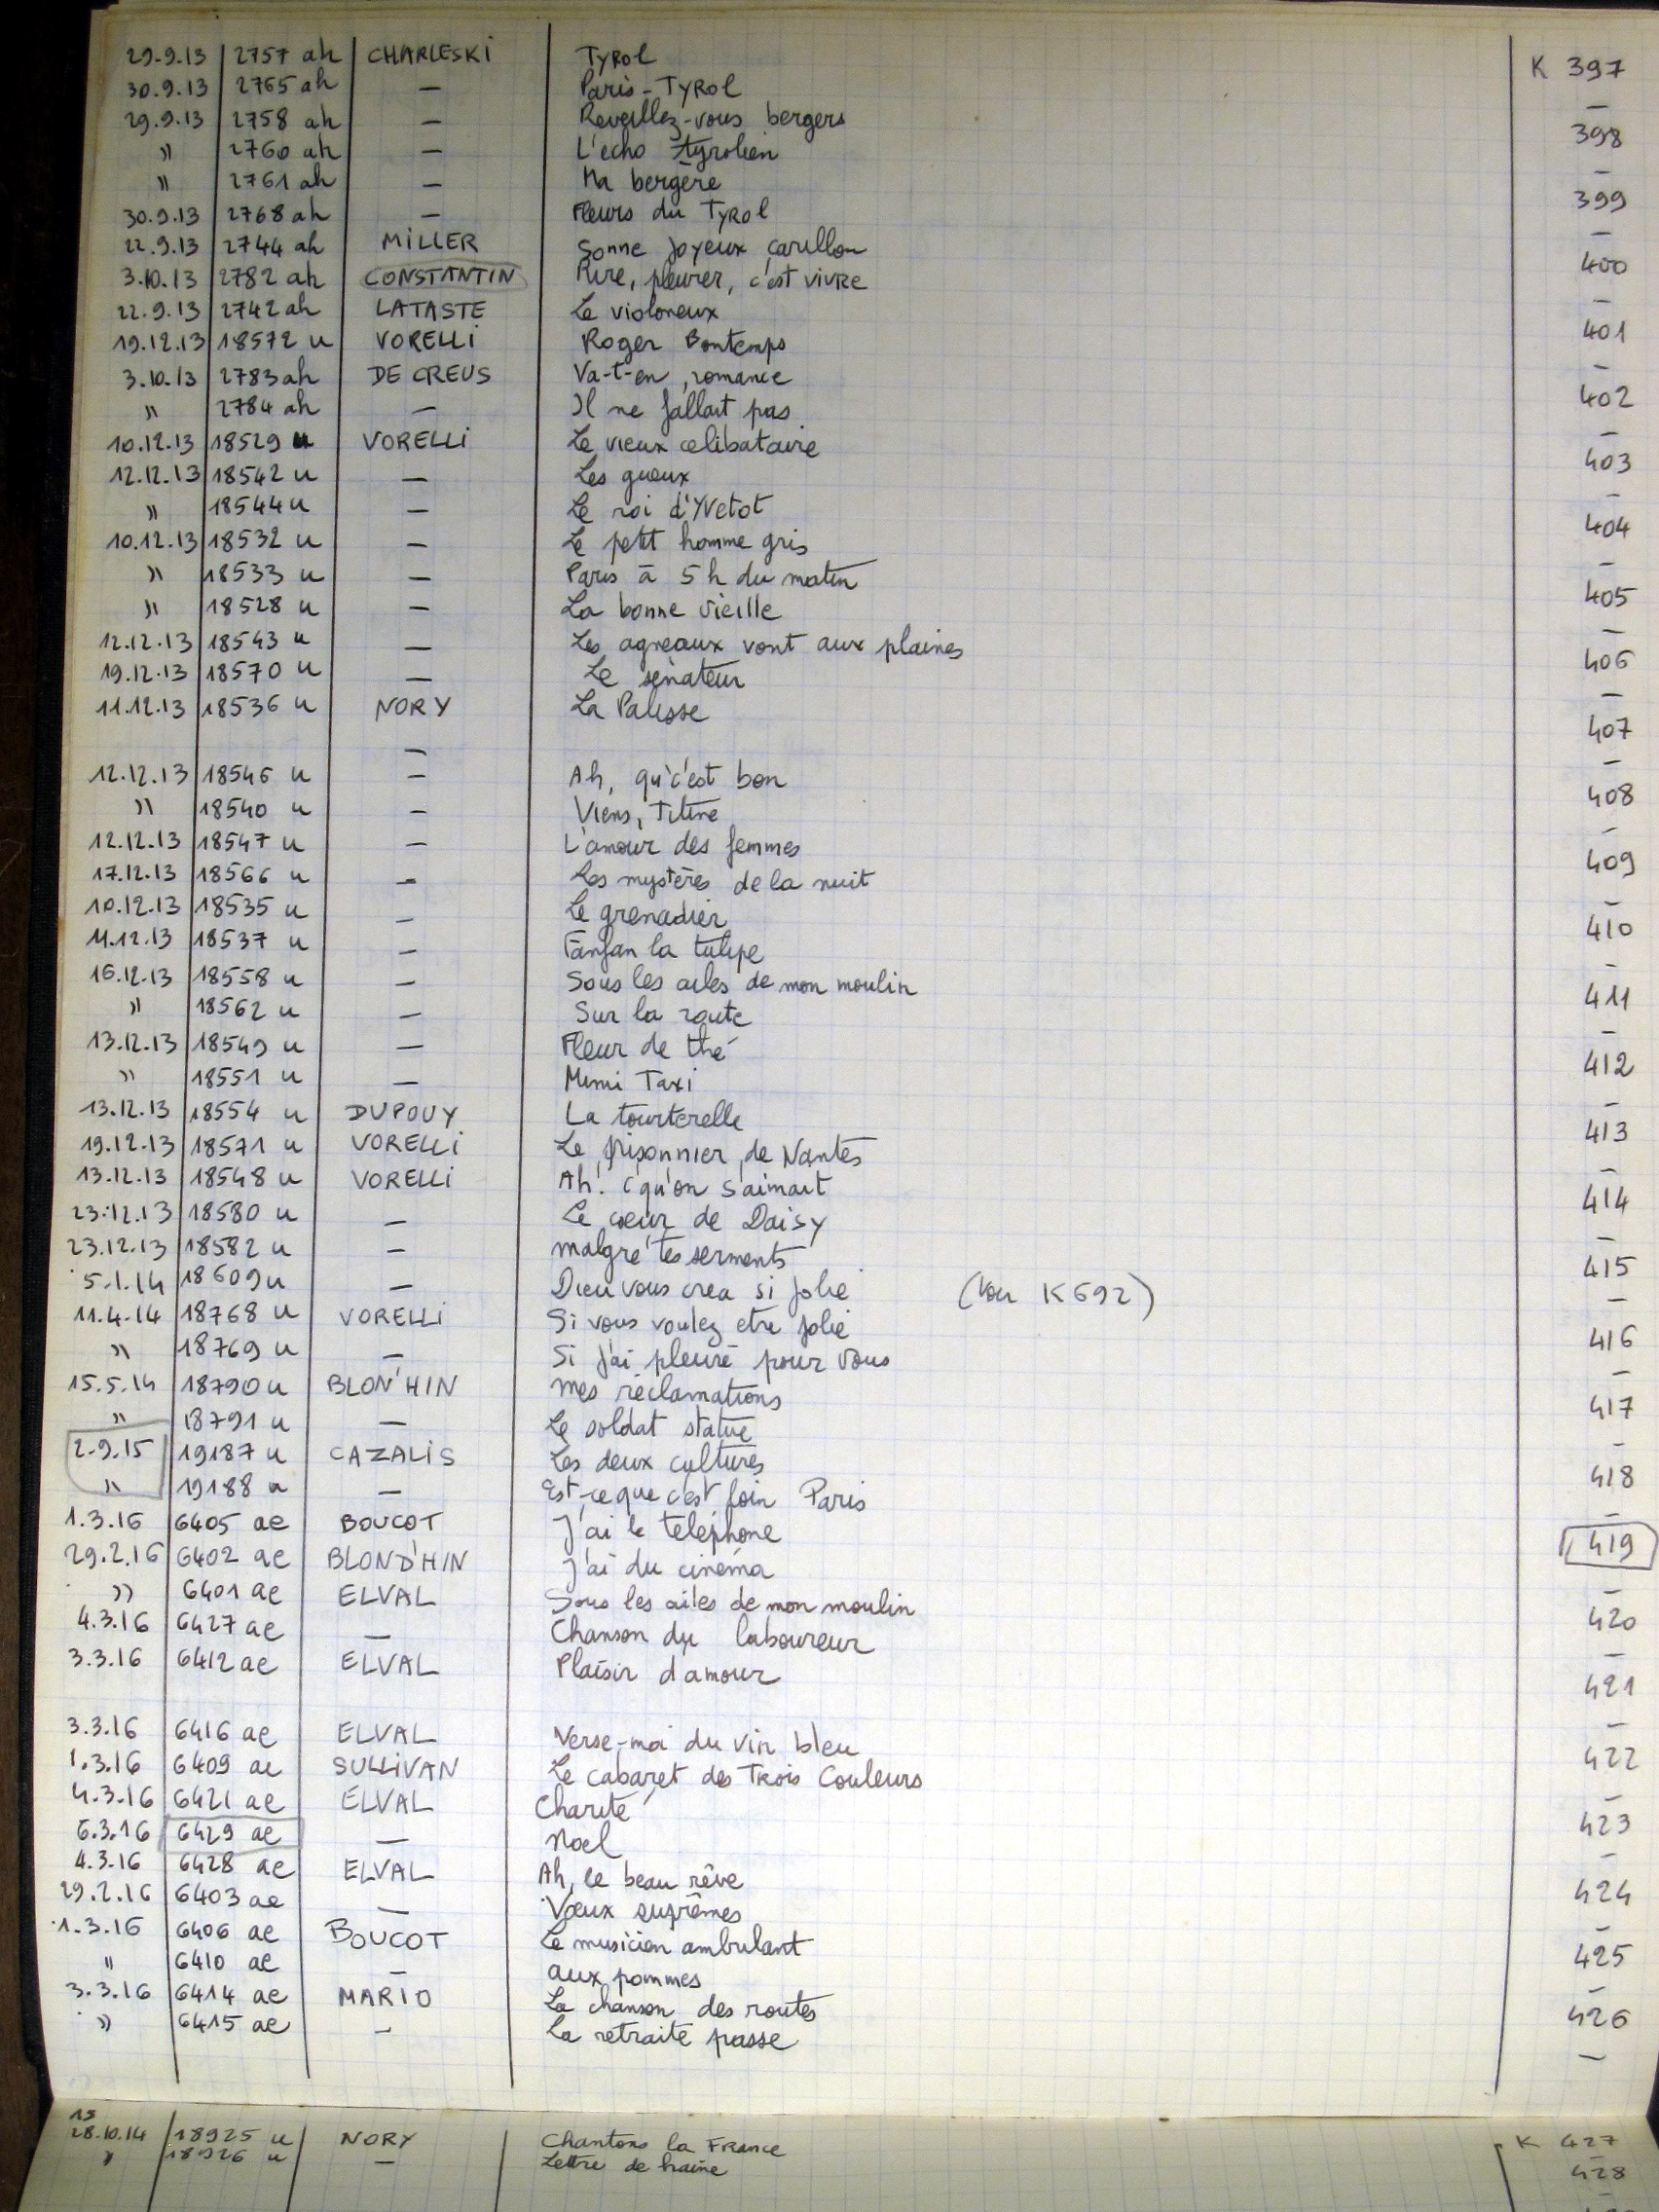 29.9.13 2757 ah CHARLESKI Tyrol K 397
30.9.13 2765 ah — Paris-Tyrol —
29.9.13 2758 ah — Reveillez-vous bergers 398
" 2760 ah — L'echo tyrolien —
" 2761 ah — Ma bergère 399
30.9.13 2768 ah — Fleurs du Tyrol —
22.9.13 2744 ah MILLER Sonne joyeux carillon 400
3.10.13 2782 ah CONSTANTIN Rire, pleurer, c'est vivre —
22.9.13 2742 ah LATASTE Le violoneux 401
19.12.13 18572 u VORELLI Roger Bontemps —
3.10.13 2783 ah DE CREUS Va-t-en, romance 402
" 2784 ah — Il ne fallait pas —
10.12.13 18529 u VORELLI Le vieux celibataire 403
12.12.13 18542 u — Les gueux —
" 18544 u — Le roi d'Yvetot 404
10.12.13 18532 u — Le petit homme gris —
" 18533 u — Paris à 5 h du matin 405
" 18528 u — La bonne vieille —
12.12.13 18543 u — Les agneaux vont aux plaines 406
19.12.13 18570 u — Le sénateur —
11.12.13 18536 u NORY La Palisse 407
— —
12.12.13 18546 u — Ah, qu'c'est bon 408
" 18540 u — Viens, Titine —
12.12.13 18547 u — L'amour des femmes 409
17.12.13 18566 u — Les mystères de la nuit —
10.12.13 18535 u — Le grenadier 410
11.12.13 18537 u — Fanfan la tulipe —
16.12.13 18558 u — Sous les ailes de mon moulin 411
" 18562 u — Sur la route —
13.12.13 18549 u — Fleur de thé 412
" 18551 u — Mimi Taxi —
13.12.13 18554 u DUPOUY La tourterelle 413
19.12.13 18571 u VORELLI Le prisonnier de Nantes —
13.12.13 18548 u VORELLI Ah! c'qu'on s'aimait 414
23.12.13 18580 u — Le cœur de Daisy —
23.12.13 18582 u — malgré tes serments 415
5.1.14 18609 u — Dieu vous crea si jolie (voir K692) —
11.4.14 18768 u VORELLI Si vous voulez etre jolie 416
" 18769 u — Si j'ai pleuré pour vous —
15.5.14 18790 u BLON'HIN mes réclamations 417
" 18791 u — Le soldat statue —
2.9.15 19187 u CAZALIS Les deux cultures 418
" 19188 u — Est-ce que c'est loin Paris —
1.3.16 6405 ae BOUCOT J'ai le telephone 419
29.2.16 6402 ae BLOND'HIN J'ai du cinema —
" 6401 ae ELVAL Sous les ailes de mon moulin 420
4.3.16 6427 ae — Chanson du laboureur —
3.3.16 6412 ae ELVAL Plaisir d'amour 421
—
3.3.16 6416 ae ELVAL Verse-moi du vin bleu 422
1.3.16 6409 ae SULLIVAN Le cabaret des Trois Couleurs —
4.3.16 6421 ae ELVAL Charité 423
6.3.16 6429 ae — Noel —
4.3.16 6428 ae ELVAL Ah, le beau rêve 424
29.2.16 6403 ae — Vœux suprêmes —
1.3.16 6406 ae BOUCOT Le musicien ambulant 425
" 6410 ae — aux pommes —
3.3.16 6414 ae MARIO La chanson des routes 426
" 6415 ae — La retraite passe —
15
28.10.14 18925 u NORY Chantons la France K 427
" 18926 u — Lettre de haine —
428